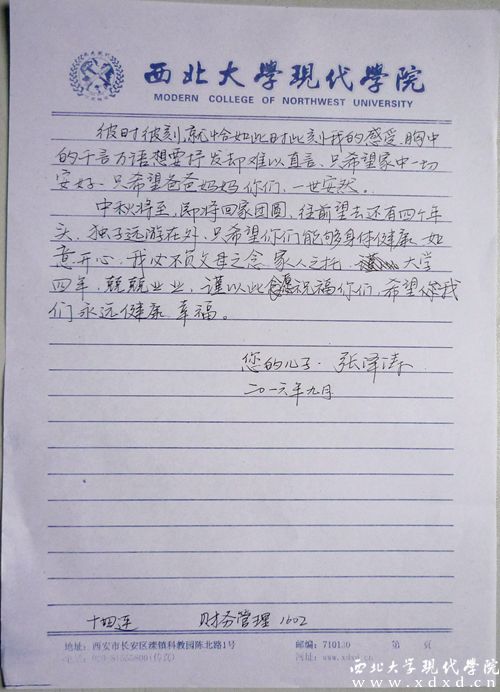 西北大學現代學院
MODERN COLLEGE OF NORTHWEST UNIVERSITY
彼时彼刻就恰如此时此刻我的感受,胸中
的千言万语想要抒发却难以直言、只希望家中一切
安好、只希望爸爸妈妈你们,一世安然。
中秋将至,即将回家团圆,往前望去还有四个年
头,独子远游在外,只希望你们能够身体健康、如
意开心,我必不负父母之念、家人之托,大学
四年,兢兢业业,谨以此祝福你们,希望我
们永远健康、幸福。
您的儿子:张泽涛
二〇一六年九月
十四连 财务管理 1602
地址:西安市长安区滦镇科教园陈北路1号 邮编:710130 第 页
西北大学现代学院
www.xdxd.cn